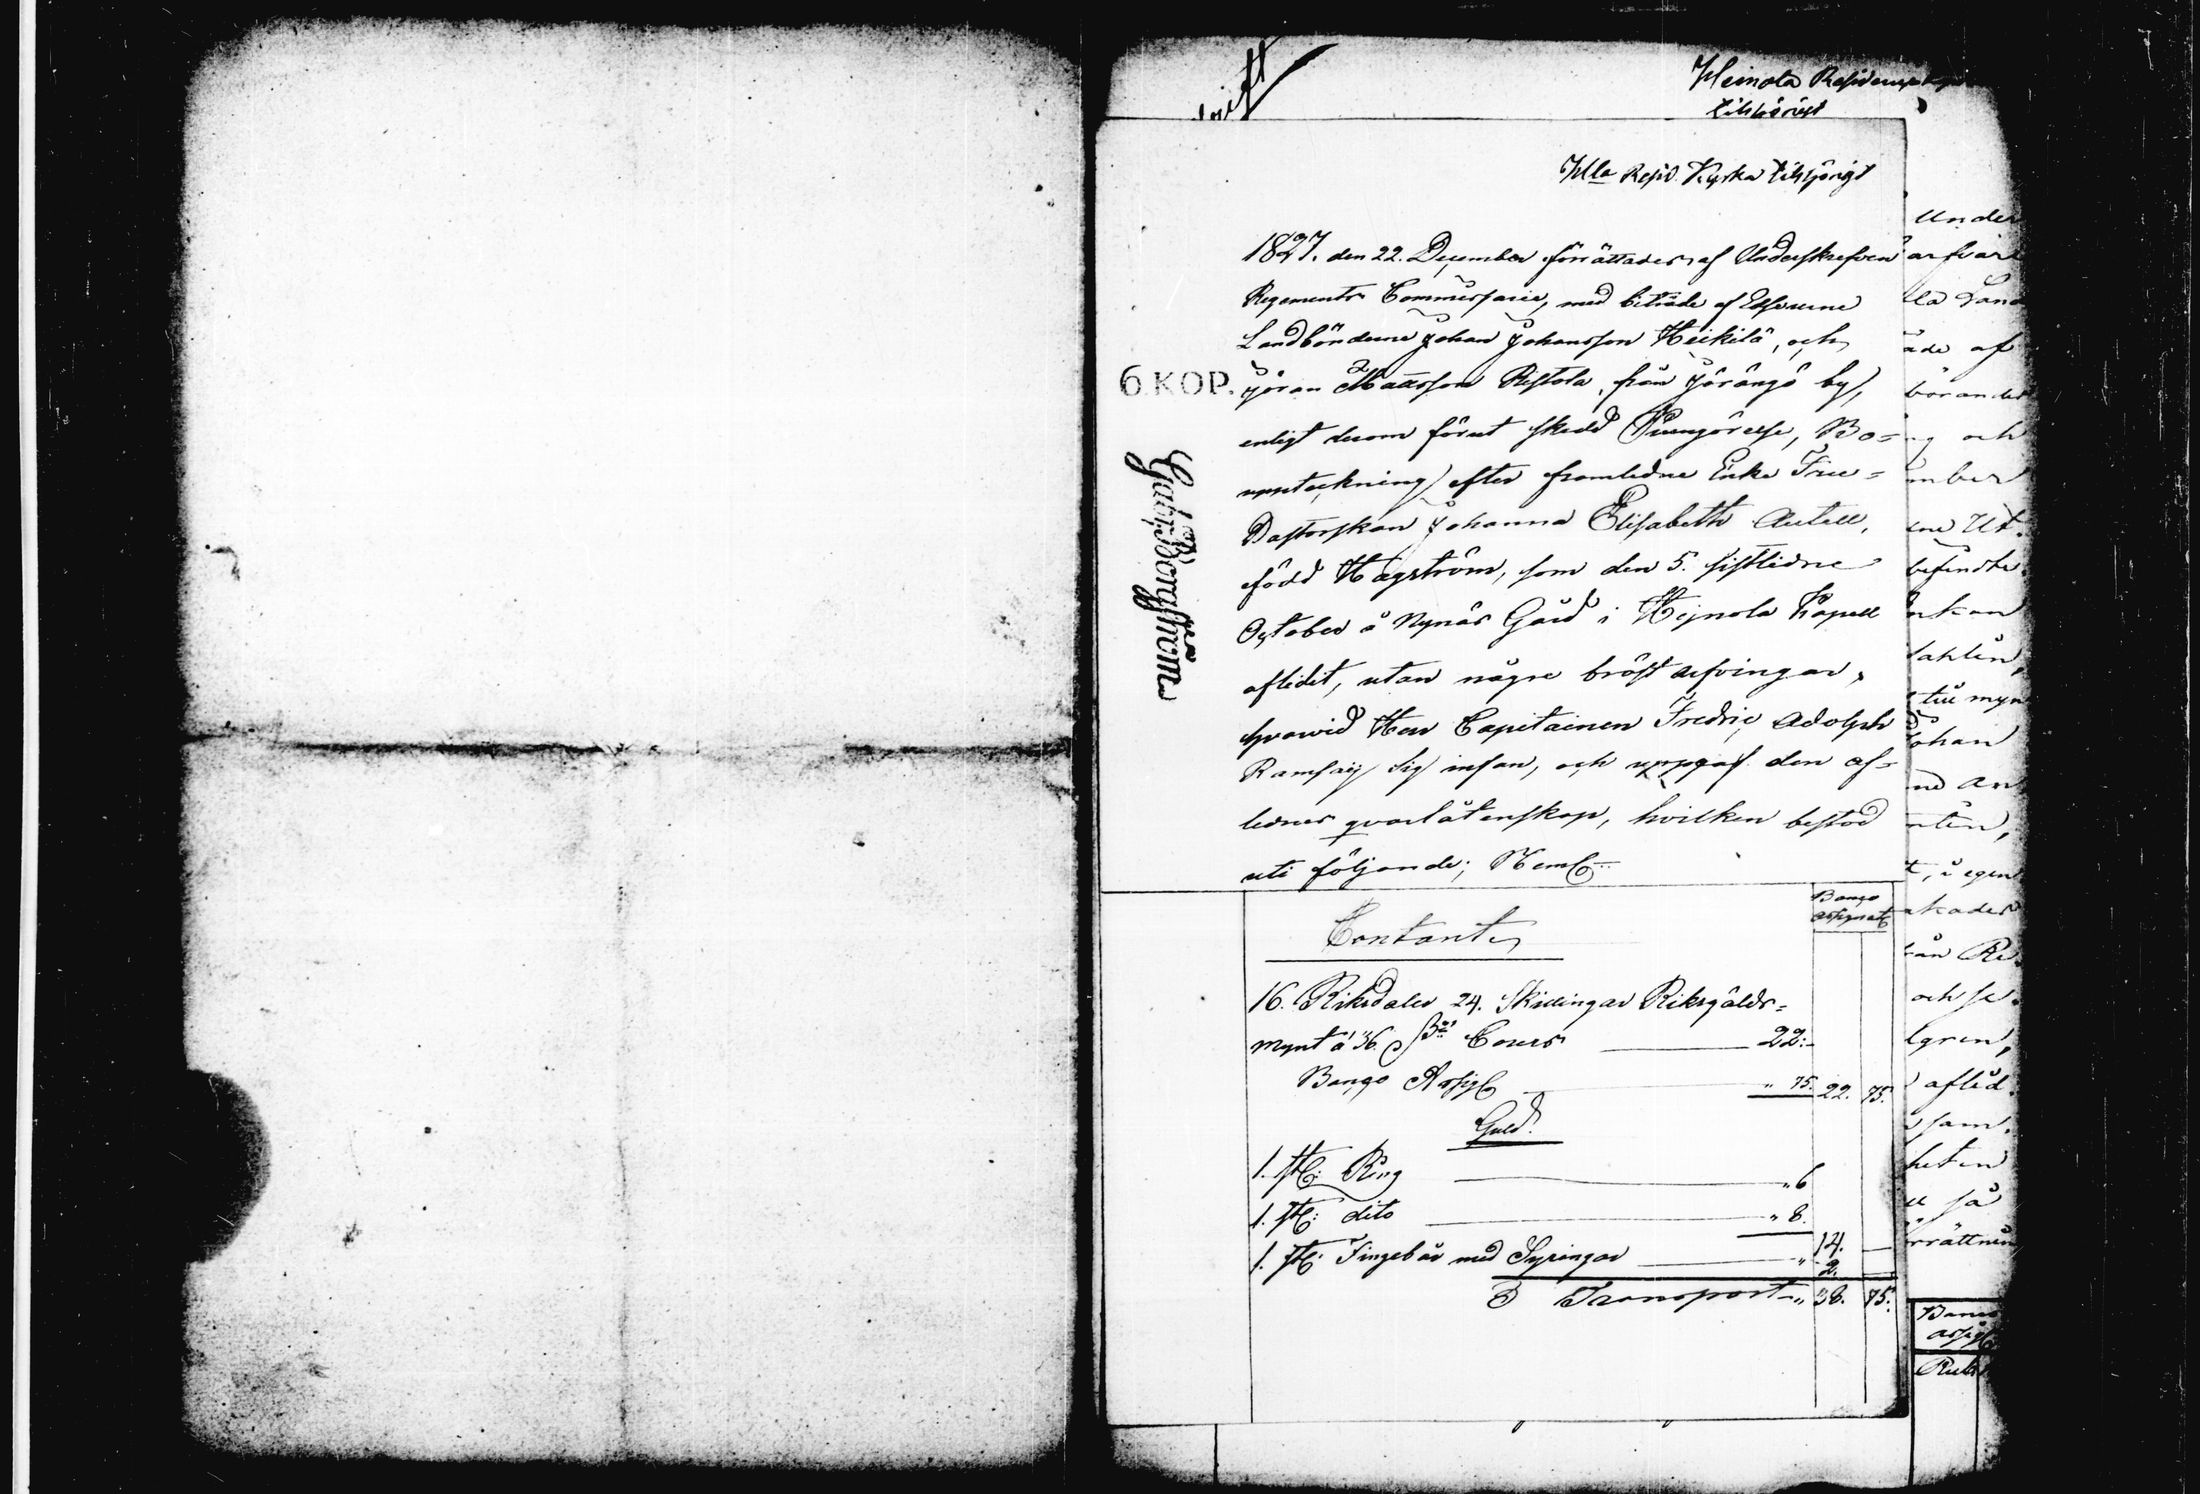 Heinola Residence
tilhörigt
Hla Resid. Kyrka tilhörigt
1827. den 22. December förrättades af Underskrefven
Regements Commissarie, med biträde af Edsvurne
Landbönderne Johan Johansson Heikilä, och
Jöran Mattsson Ristola, från Jyrängö by,
enligt derom förut skedd Kungörelse, Bo-
uppteckning efter framledne Enke Frue-
Pastorskan Johanna Elisabeth Autell,
född Hagström, som den 5. sistledne
October å Nynäs Gård i Hejnola Kapell
aflidit, utan några bröst arfvingar,
hvarvid Herr Capitainen Fredric Adolph
Ramsay sig infan, och uppgaf den af-
lednes qvarlåtenskap, hvilken bestod
uti följande; Neml:
6 KOP.
Gabr. Bergström
Banco
Assignat
Contant
16. Riksdaler 24. Skillingar Riksgälds-
mynt á 36 Cours 22:-
Banco Assig " 75. 22. 75.
Guld.
1. st: Ring " 6
1. st: dito " 8.
14. —
1. st: Fingebår med Syringar " 2. —
Transport " 38. 75.
Under
arfvar
lla Land
äde af
börandes
g och
mber
ene Ut-
befindte
nkan
dahlén,
till myn
Johan
nd An
ntén,
t, i egen
akades
från Re-
och se-
lgren,
aflid-
sam-
heten
så
rrättnin
Banco
assig
Rub